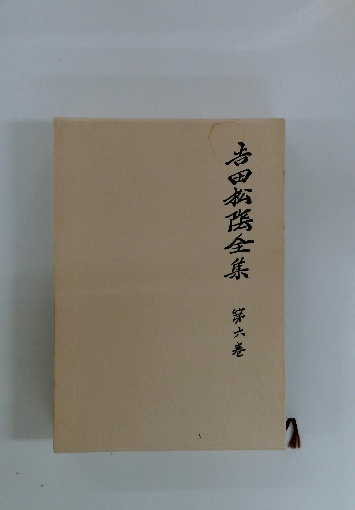 吉田松陰全集 第六巻